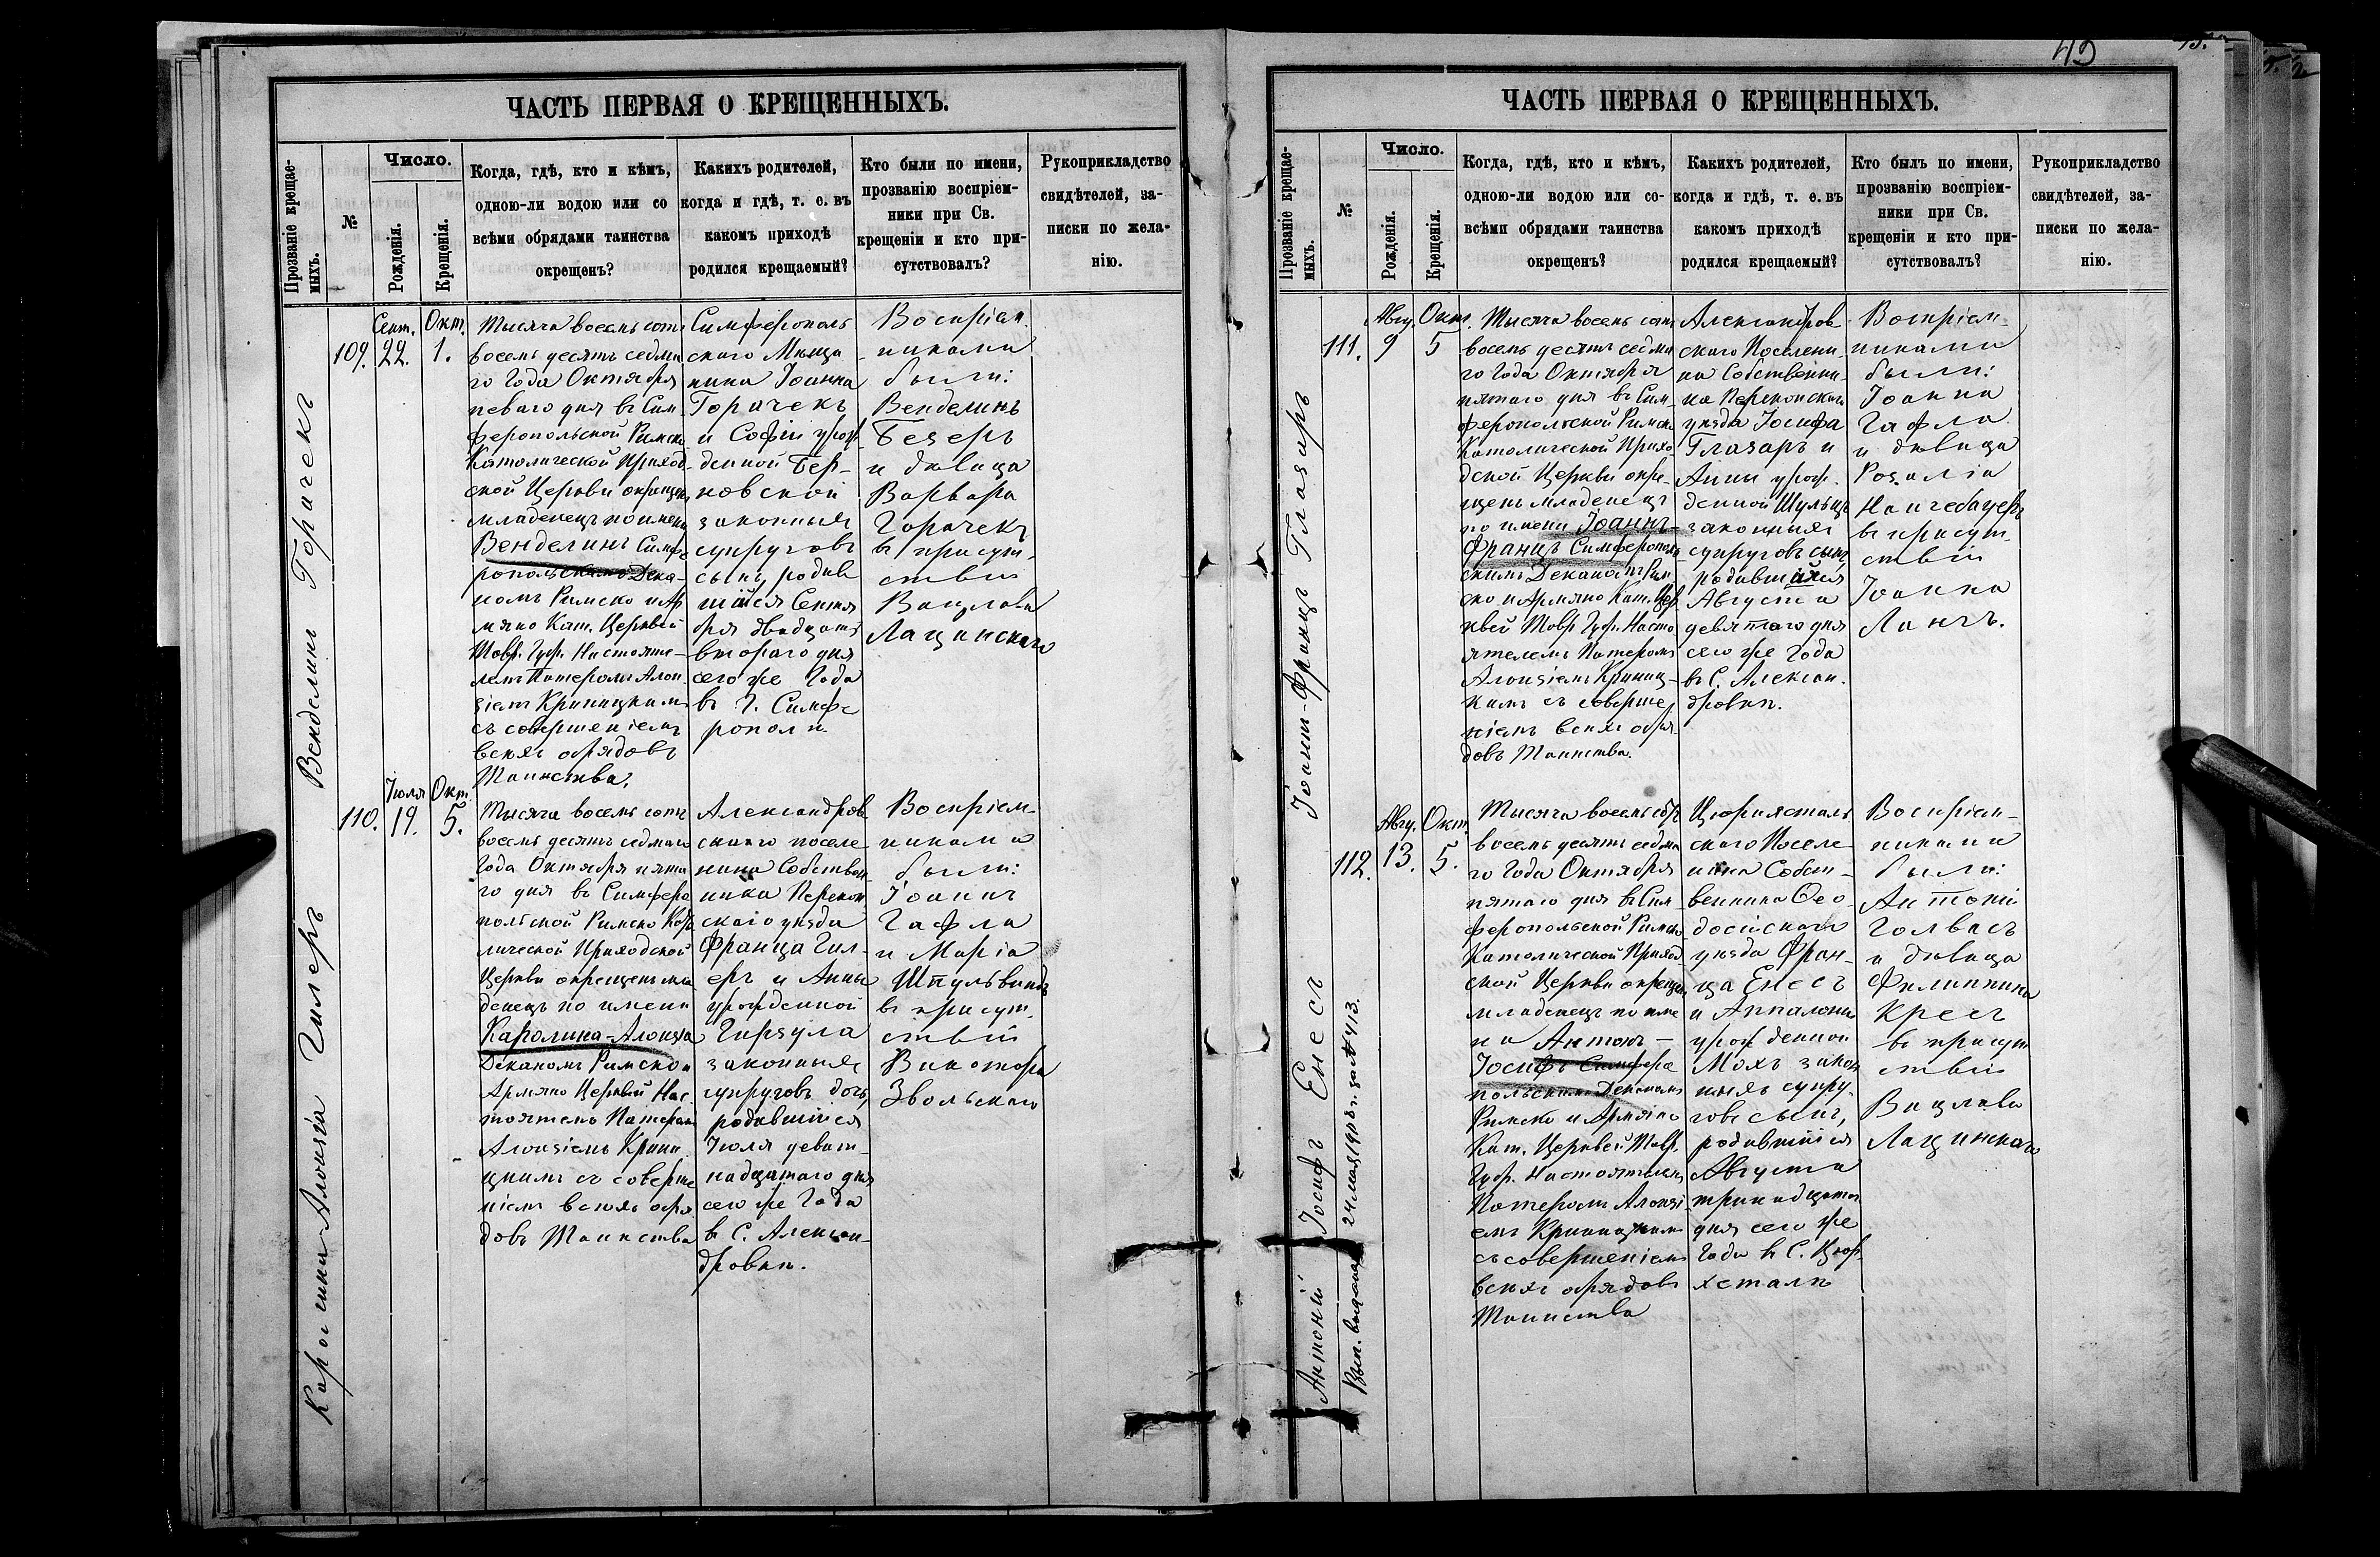 49
ЧАСТЬ ПЕРВАЯ О КРЕЩЕННЫХЪ.
Прозваніе крещае-
мыхъ.
№
Число.
Рожденія.
Крещенія.
Когда, гдѣ, кто и кѣмъ,
одною-ли водою или со
всѣми обрядами таинства
окрещенъ?
Какихъ родителей,
когда и гдѣ, т. е. въ
какомъ приходѣ
родился крещаемый?
Кто были по имени,
прозванію воспріем-
ники при Св.
крещеніи и кто при-
сутствовалъ?
Рукоприкладство
свидѣтелей, за-
писки по жела-
нію.
Венделинъ Горачекъ
109.
Сент.
22.
Окт.
1.
Тысяча восемь сотъ
восемь десятъ седма
го Года Октября
перваго дня въ Сим
феропольской Римско
Католической Приход
ской Церкви окрещенъ
младенецъ по имени
Венделинъ Симфе
ропольскимъ Дека-
номъ Римско и Ар
мяно Кат. Церквей
Тавр. Губ. Настояте-
лемъ Патеромъ Алои
зіемъ Криницкимъ
съ совершеніемъ
всѣхъ обрядовъ
Таинства.
Симферополь
скаго Мѣща
нина Іоанна
Горачекъ
и Софіи урож
денной Бер-
новской
законныхъ
супруговъ
сынъ, родив
шійся Сентя
бря двадцать
втораго дня
сего же Года
въ Г. Симфе
рополѣ
Воспріем.
никами
были:
Венделинъ
Безеръ
и дѣвица
Варвара
Горачекъ
въ присут-
ствіи
Вацлава
Лацинскаго
Каролина-Алоизія Гилеръ
110.
Іюля
19.
Окт.
5.
Тысяча восемь сотъ
восемь десятъ седмаго
Года Октября пята
го дня въ Симферо
польской Римско Като
лической Приходской
Церкви окрещенъ мла
денецъ по имени
Каролина-Алоизія
Деканомъ Римско и
Армяно Церквей Нас-
тоятель Патеромъ
Алоизіемъ Крини
цкимъ съ соверше
ніемъ всѣхъ обря
довъ Таинства
Александров
скаго поселе
нина Собствен
ника Перекоп
скаго уѣзда
Франца Гил-
еръ и Анны
урожденной
Гирзула
законныхъ
супруговъ дочь,
родившійся
Іюля девят-
надцатаго дня
сего же Года
въ С. Алексан-
дровкѣ.
Воспріем-
никами
были:
Іоаннъ
Гафла
и Марія
Шпульвиндъ
въ присут-
ствіи
Виктора
Звольскаго
ЧАСТЬ ПЕРВАЯ О КРЕЩЕННЫХЪ.
Прозваніе крещае-
мыхъ.
№
Число.
Рожденія.
Крещенія.
Когда, гдѣ, кто и кѣмъ,
одною-ли водою или со-
всѣми обрядами таинства
окрещенъ?
Какихъ родителей,
когда и гдѣ, т. е. въ
какомъ приходѣ
родился крещаемый?
Кто былъ по имени,
прозванію воспріем-
ники при Св.
крещеніи и кто при-
сутствовалъ?
Рукоприкладство
свидѣтелей, за-
писки по жела-
нію.
Іоаннъ-Францъ Глазаръ
111.
Авгу.
9
Окт.
5
Тысяча восемь сотъ
восемь десятъ седма
го Года Октября
пятаго дня въ Сим-
феропольской Римско
Католической Прихо-
дской Церкви окре-
щенъ младенецъ
по имени Іоаннъ-
Францъ Симферополь
скимъ Деканомъ Рим
ско и Армяно Кат. Цер
квей Тавр. Губ. Насто
ятелемъ Патеромъ
Алоизіемъ Криниц-
кимъ съ соверше
ніемъ всѣхъ обря
довъ Таинства.
Александров
скаго Поселени
на Собственни
ка Перекопскаго
уѣзда Іосифа
Глазаръ и
Анны урож.
денной Шульцъ
законныхъ
супруговъ сынъ,
родившійся
Августа
девятаго дня
сего же Года
въ С. Алексан.
дровкѣ.
Воспріем-
никами
были:
Іоанна
Гафла
и дѣвица
Розалія
въ присут-
ствіи
Іоанна
Лангъ.
Антоній Іосифъ Енесъ
Вып. выдана 24 мая 1908 г. за № 413.
112.
Авгу.
13.
Окт.
5.
Тысяча восемь сотъ
восемь десятъ седма
го Года Октября
пятаго дня въ Сим-
феропольской Римско
Католической Приход
ской Церкви окрещенъ
младенецъ по име
ни Антонъ-
Іосифъ Симферо
польскимъ Деканомъ
Римско и Армяно
Кат. Церквей Тавр.
Губ. Настоятелемъ
Патеромъ Алоизі-
емъ Криницкимъ
съ совершеніемъ
всѣхъ обрядовъ
Таинства
Цюрихсталь
скаго Поселе-
нина Собст-
венника Ѳео-
досійскаго
уѣзда Фран-
ца Енесъ
и Аппалоніи
урож денной
Мохъ закон
ныхъ супру-
говъ сынъ,
родившійся
Августа
тринадцатаго
дня сего же
Года въ С. Цюр
хсталѣ
Воспріем-
никами
были:
Антоній
Голвасъ
и дѣвица
Филиппина
Кресъ
въ присут
ствіи
Вацлава
Лацинскаго